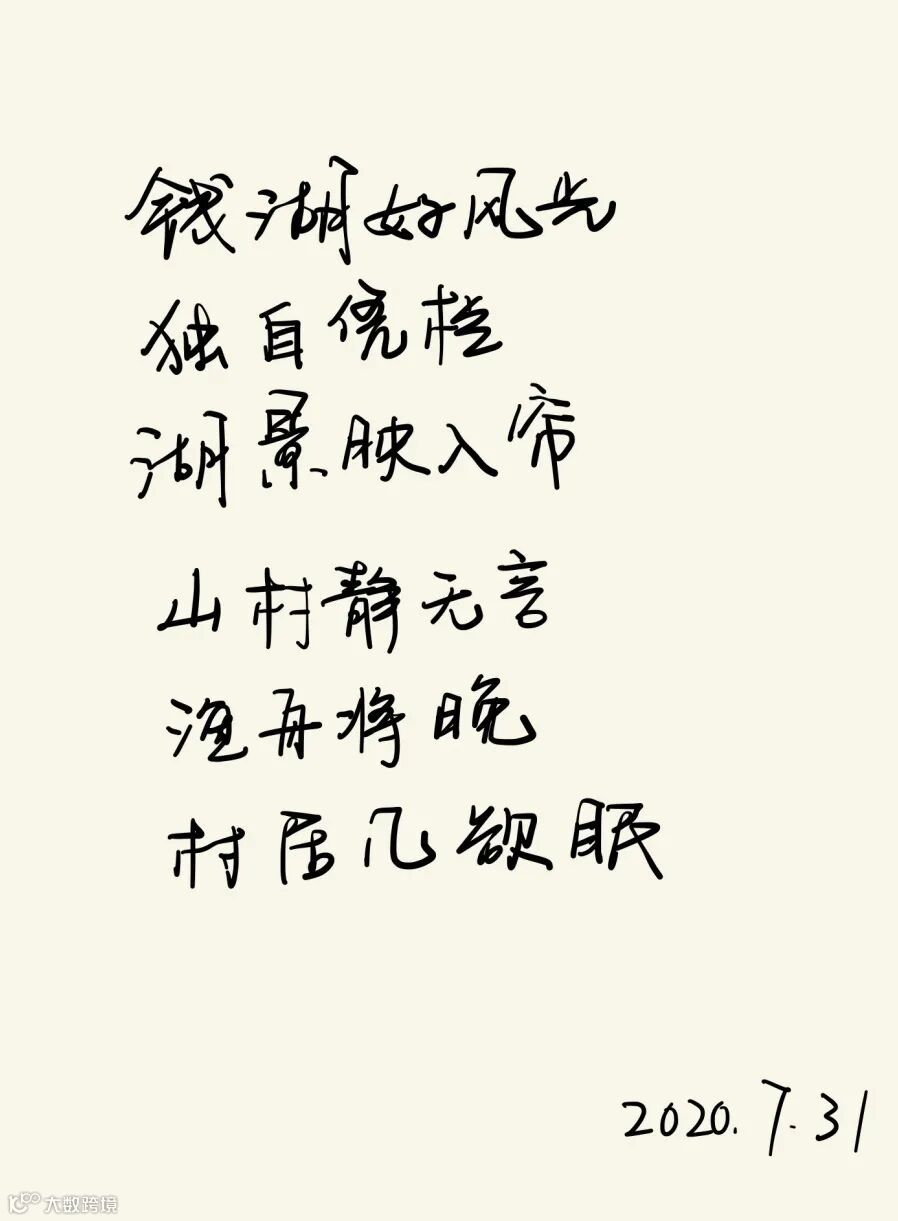 钱湖好风光
独自凭栏
湖景映入帘
山村静无言
渔舟将晚
村居几欲眠
2020.7.31
大数跨境